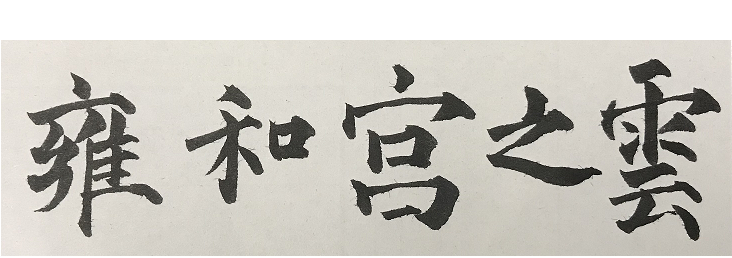 雍和宫之雲